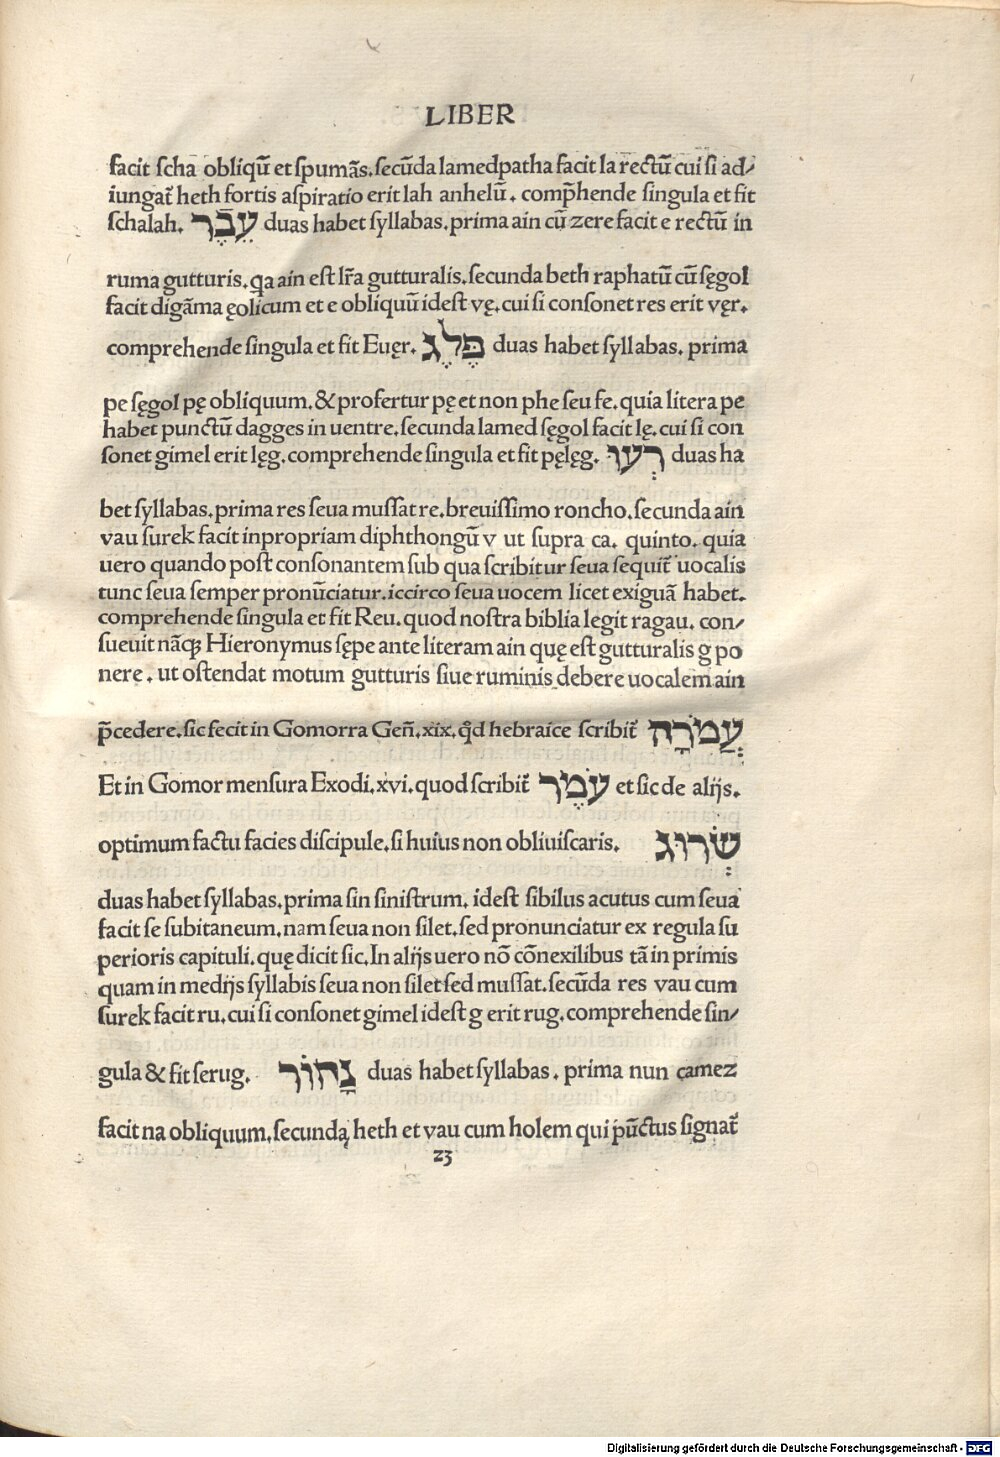 LIBER
facit ſcha obliqũ et ſpumãs. ſecũda lamed patha facit la rectũ cui ſi ad/
iungat̃ heth fortis aſpiratio erit lah anhelũ. comp̃hende ſingula et fit
ſchalah. עֵבֶֿר duas habet ſyllabas. prima ain cũ zere facit e rectũ in
ruma gutturis. qa ain eſt lr̃a gutturalis. ſecunda beth raphatũ cũ ſęgol
facit digãma ęolicum et e obliquũ ideſt vę. cui ſi conſonet res erit vęr.
comprehende ſingula et fit Euęr. פֶּלֶג duas habet ſyllabas. prima
pe ſęgol pę obliquum. & profertur pę et non phe ſeu fe. quia litera pe
habet punctũ dagges in uentre. ſecunda lamed ſęgol facit lę. cui ſi con
ſonet gimel erit lęg. comprehende ſingula et fit pęlęg. רְעוּ duas ha
bet ſyllabas. prima res ſeua muſſat re. breuiſſimo roncho. ſecunda ain
vau ſurek facit inpropriam diphthongũ v ut ſupra ca. quinto. quia
uero quando poſt conſonantem ſub qua ſcribitur ſeua ſequit̃ uocalis
tunc ſeua ſemper pronũciatur. iccirco ſeua uocem licet exiguã habet.
comprehende ſingula et fit Reu. quod noſtra biblia legit ragau. con/
ſueuit nãq̃ Hieronymus ſępe ante literam ain quę eſt gutturalis g po
nere. ut oſtendat motum gutturis ſiue ruminis debere uocalem ain
p̃cedere. ſic fecit in Gomorra Geñ. xix. qd̃ hebraice ſcribit̃ עֲמֹרָה
Et in Gomor menſura Exodi. xvi. quod ſcribit̃ עֹמֶר et ſic de alijs.
optimum factu facies diſcipule. ſi huius non obliuiſcaris. שְׂרוּג
duas habet ſyllabas. prima ſin ſiniſtrum. ideſt ſibilus acutus cum ſeua
facit ſe ſubitaneum. nam ſeua non ſilet. ſed pronunciatur ex regula ſu
perioris capituli. quę dicit ſic. In alijs uero nõ cõnexilibus tã in primis
quam in medijs ſyllabis ſeua non ſilet ſed muſſat. ſecũda res vau cum
ſurek facit ru. cui ſi conſonet gimel ideſt g erit rug. comprehende ſin/
gula & fit ſerug. נָחוֹר duas habet ſyllabas. prima nun camez
facit na obliquum. ſecunda heth et vau cum holem qui pũctus ſignat̃
23
Digitalisierung gefördert durch die Deutsche Forschungsgemeinschaft - DFG